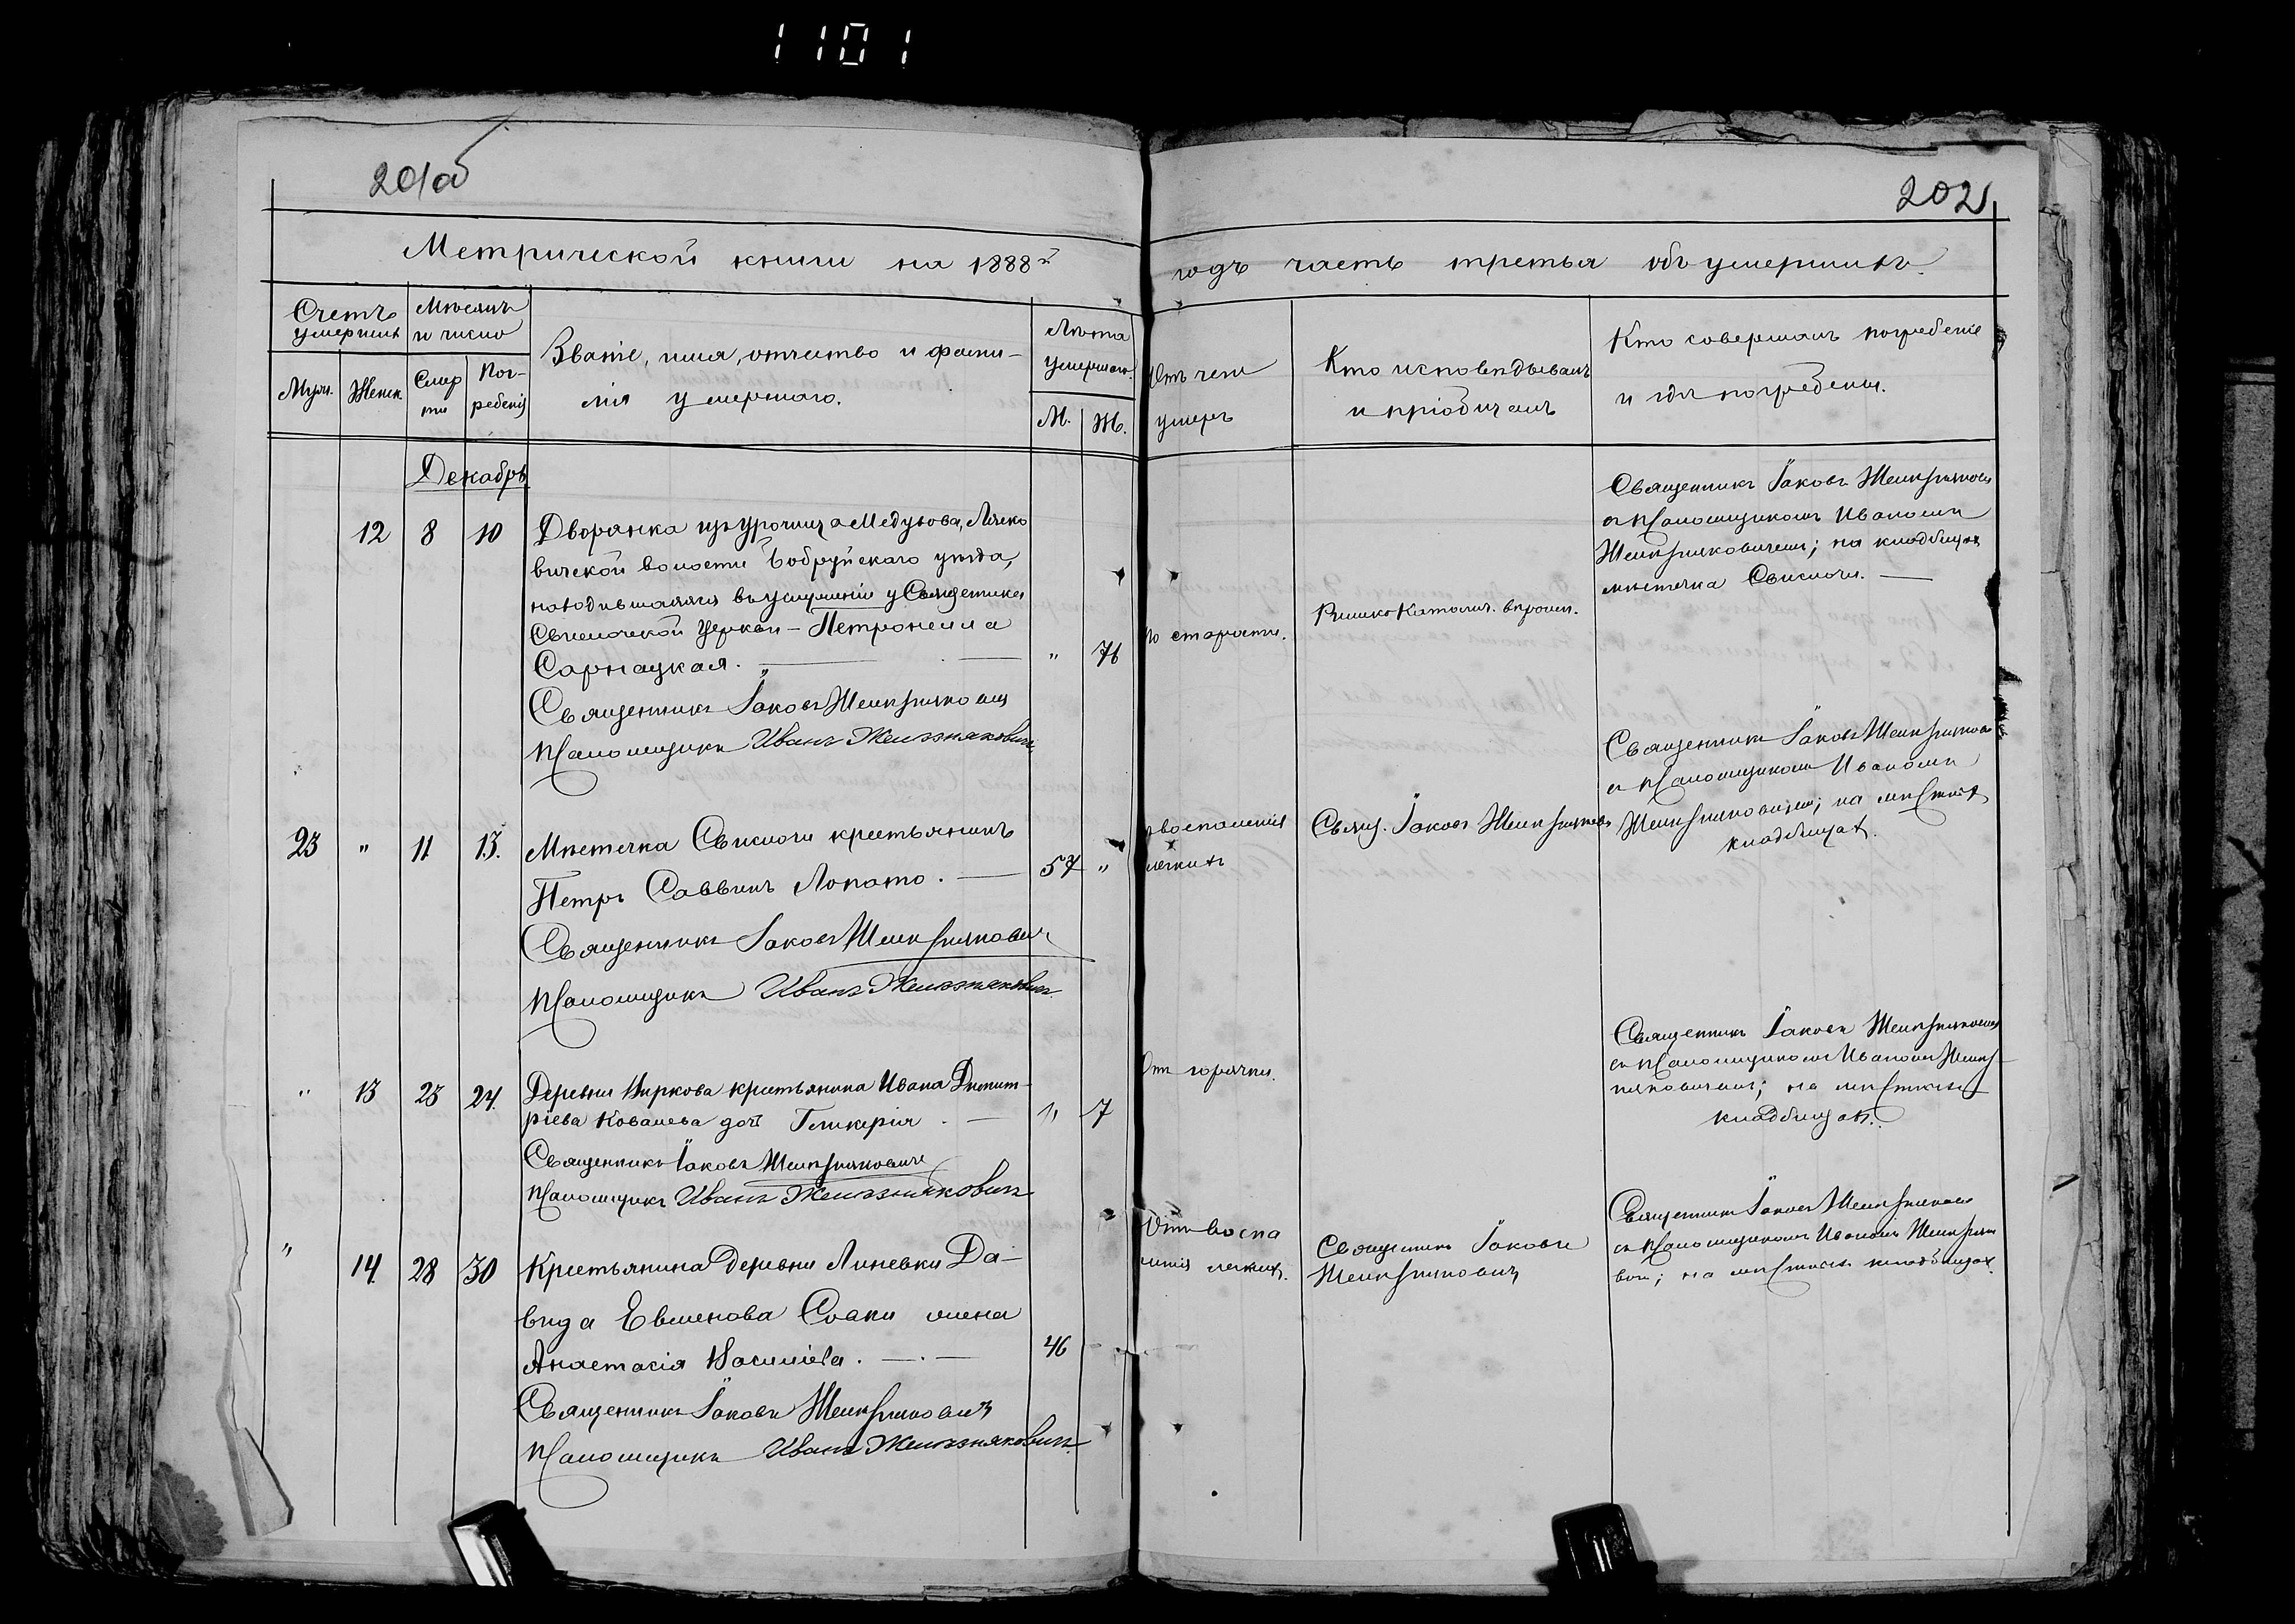 1101
201об
202
Метрической книги на 1888й
годъ часть третья объ умершихъ.
Счетъ умершихъ
Мѣсяцъ и число
Званіе, имя, отчество и фами-
лія умершаго.
Лѣта умершаго
Отъ чего умеръ
Кто исповѣдывалъ
и пріобщалъ
Кто совершалъ погребеніе
и гдѣ погребены.
Муж.
Женск.
Смер
ти
Пог-
ребенія
М.
Ж.
Декабрь
12 8 10
Дворянка изъ урочища Медухова, Ляско
вичской волости Бобруйскаго уѣзда,
находившаяся въ услуженіи у Священника
Свислочской Церкви – Петронелла
Сарнацкая.
" 76
Священникъ Іаковъ Желѣзняковичъ
Псаломщикъ Иванъ Желѣзняковичъ
По старости.
Римско Католич. вѣроисп.
Священникъ Іаковъ Желѣзняковичъ
съ Псаломщикомъ Иваномъ
Желѣзняковичемъ; на кладбищѣ
мѣстечка Свислочи.
23 " 11 13.
Мѣстечка Свислочи крестьянинъ
Петръ Саввинъ Лопато.
57 "
Священникъ Іаковъ Желѣзняковичъ
Псаломщикъ Иванъ Желѣзняковичъ
воспаленія
легкихъ
Свящ. Іаковъ Желѣзняковичъ
Священникъ Іаковъ Желѣзняковичъ
съ Псаломщикомъ Иваномъ
Желѣзняковичемъ; на мѣстныхъ
кладбищах.
" 13 23 24.
Деревни Виркова крестьянина Ивана Димит-
ріева Ковалева дочь Гликерія.
" 7
Священникъ Іаковъ Желѣзняковичъ
Псаломщикъ Иванъ Желѣзняковичъ
Отъ горячки.
Священникъ Іаковъ Желѣзняковичъ
съ Псаломщикомъ Иваномъ Желѣз-
няковичемъ; на мѣстныхъ
кладбищах.
" 14 28 30
Крестьянина Деревни Линевки Да-
вида Евменова Собки жена
Анастасія Василіева.
46
Священникъ Іаковъ Желѣзняковичъ
Псаломщикъ Иванъ Желѣзняковичъ
Отъ воспа
ленія легкихъ.
Священникъ Іаковъ
Желѣзняковичъ
Священникъ Іаковъ Желѣзняковичъ
съ Псаломщикомъ Иваномъ Желѣзняко
вич; на мѣстныхъ кладбищах.